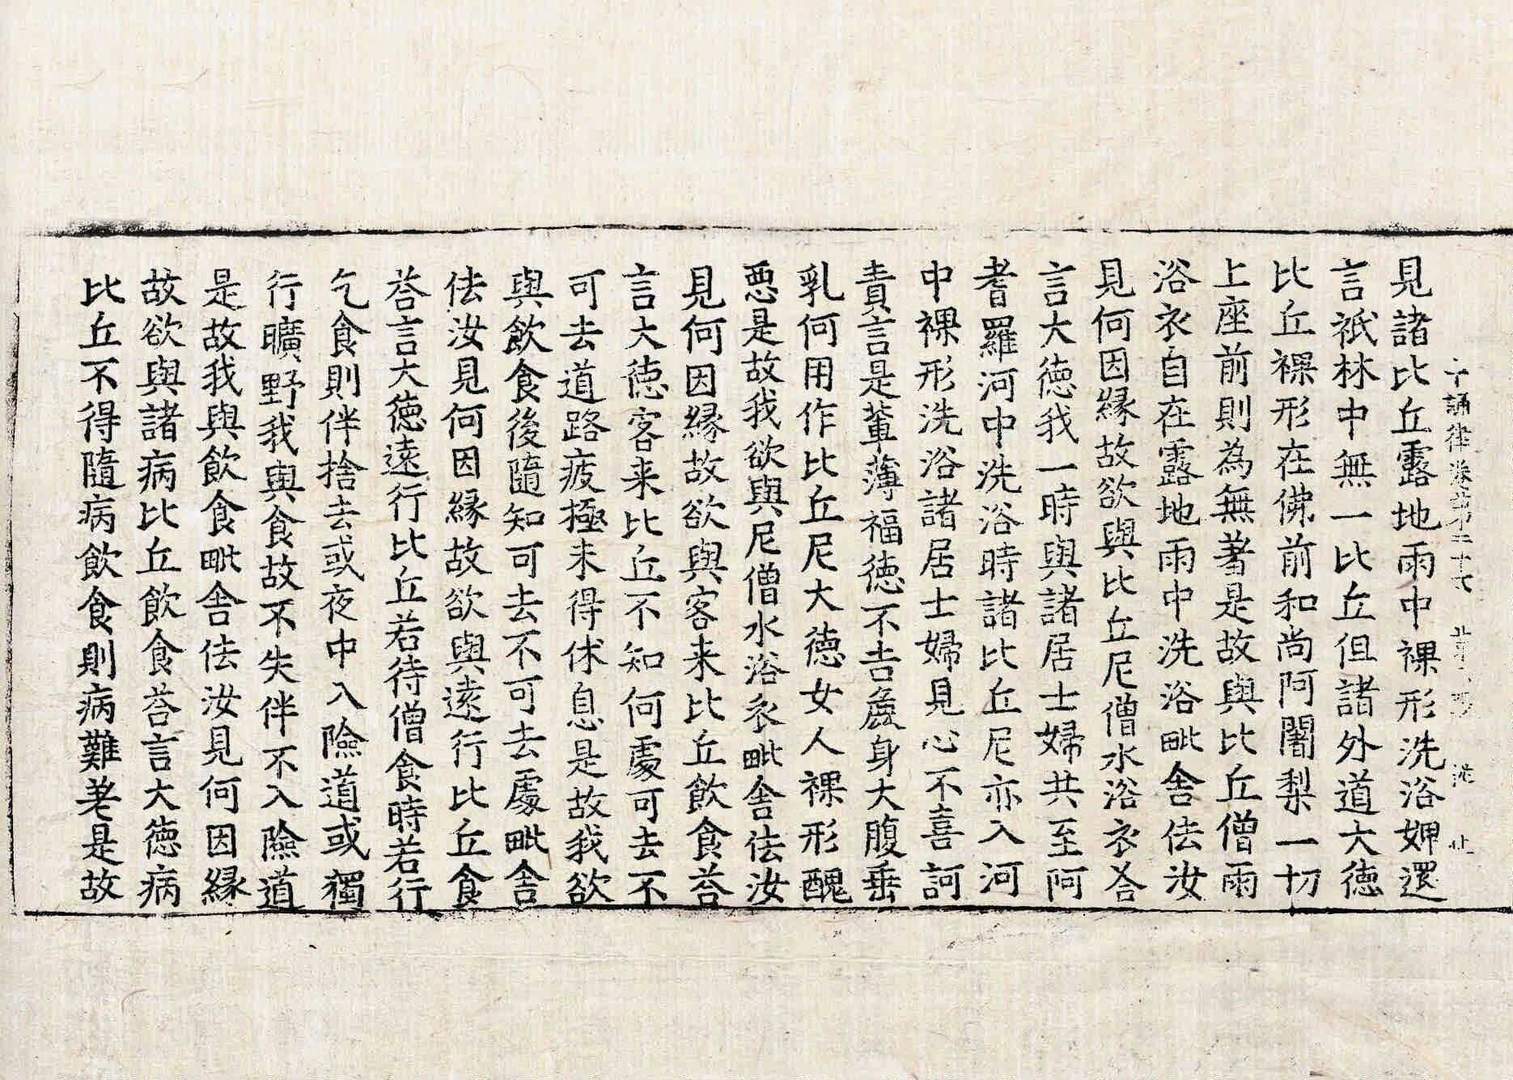 十誦律卷第二十七
見諸比丘露地雨中裸形洗浴婢還
言祇林中無一比丘但諸外道大徳
比丘裸形在佛前和尚阿闍梨一切
上座前則為無著是故與比丘僧雨
浴衣自在露地雨中洗浴毗舍佉汝
見何因縁故欲與比丘尼僧水浴衣荅
言大徳我一時與諸居士婦共至阿
耆羅河中洗浴時諸比丘尼亦入河
中裸形洗浴諸居士婦見心不喜訶
責言是軰薄福徳不吉麁身大腹垂
乳何用作比丘尼大徳女人裸形醜
惡是故我欲與尼僧水浴衣毗舍佉汝
見何因縁故欲與客来比丘飲食荅
言大徳客来比丘不知何處可去不
可去道路疲極未得休息是故我欲
與飲食後隨知可去不可去處毗舍
佉汝見何因縁故欲與逺行比丘食
荅言大徳逺行比丘若待僧食時若行
乞食則伴捨去或夜中入險道或獨
行曠野我與食故不失伴不入險道
是故我與飲食毗舍佉汝見何因縁
故欲與諸病比丘飲食荅言大徳病
比丘不得隨病飲食則病難差是故